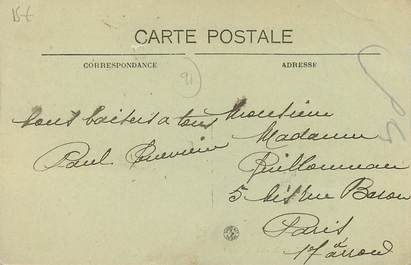 15 €
CARTE POSTALE
CORRESPONDANCE
ADRESSE
91
Bons baisers a tous
Paul
Monsieur
Madame
Guillonneau
5 bis rue Baron
Paris
17 arron